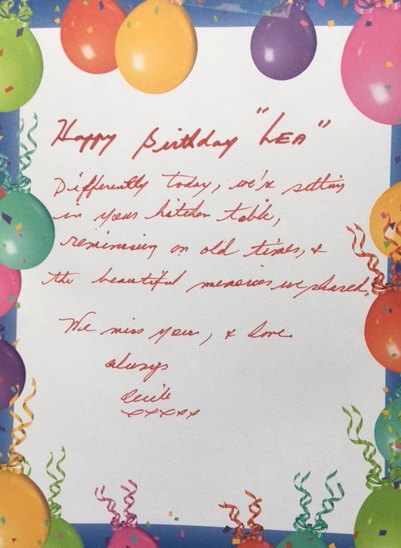 Happy Birthday "LEA"
Differently today, we're sitting
in your kitchen table,
reminising on old times, &
the beautiful memories we shared.
We miss you, & love
always
Cecile
xxxxx